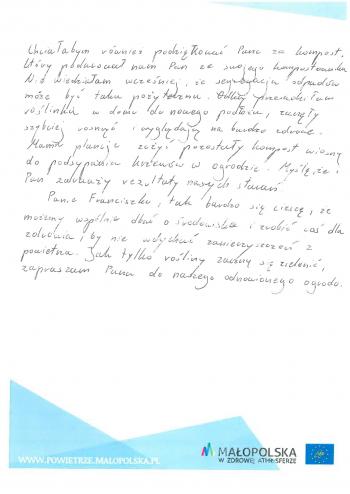 Chciałabym również podziękować Panu za kompost,
który podarował nam Pan ze swojego kompostownika.
Nie wiedziałam wcześniej, że segregacja odpadów
może być taka pożyteczna. Odkąd przesadziłam
roślinki w domu do nowego podłoża, zaczęły
szybciej rosnąć i wyglądają na bardzo zdrowe.
Mama planuje zużyć pozostały kompost wiosną
do podsypania krzewów w ogrodzie. Myślę, że i
Pan zauważy rezultaty naszych starań.
Panie Franciszku, tak bardzo się cieszę, że
możemy wspólnie dbać o środowisko i zrobić coś dla
zdrowia, by nie wdychać zanieczyszczeń z
powietrza. Jak tylko rośliny zaczną się zielenić,
zapraszam Pana do naszego odnowionego ogrodu.
WWW.POWIETRZE.MALOPOLSKA.PL
MAŁOPOLSKA
W ZDROWEJ ATMOSFERZE